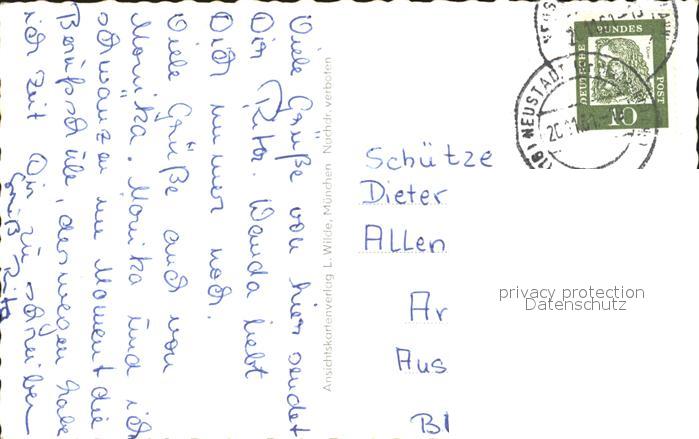 Viele Grüße von hier sendet
Dir Rita. Wanda liebt
Dich immer noch.
Viele Grüße auch von
Monika. Monika und ich
schwänzen im Moment die
Berufsschule, deswegen habe
ich Zeit Dir zu schreiben
Gruß Rita
Ansichtskartenverlag L. Wilde, München Nachdr. verboten
DEUTSCHE BUNDES POST
10
NEUSTADT
Schütze
Dieter
Allen
Ar
Aus
Bl
privacy protection
Datenschutz